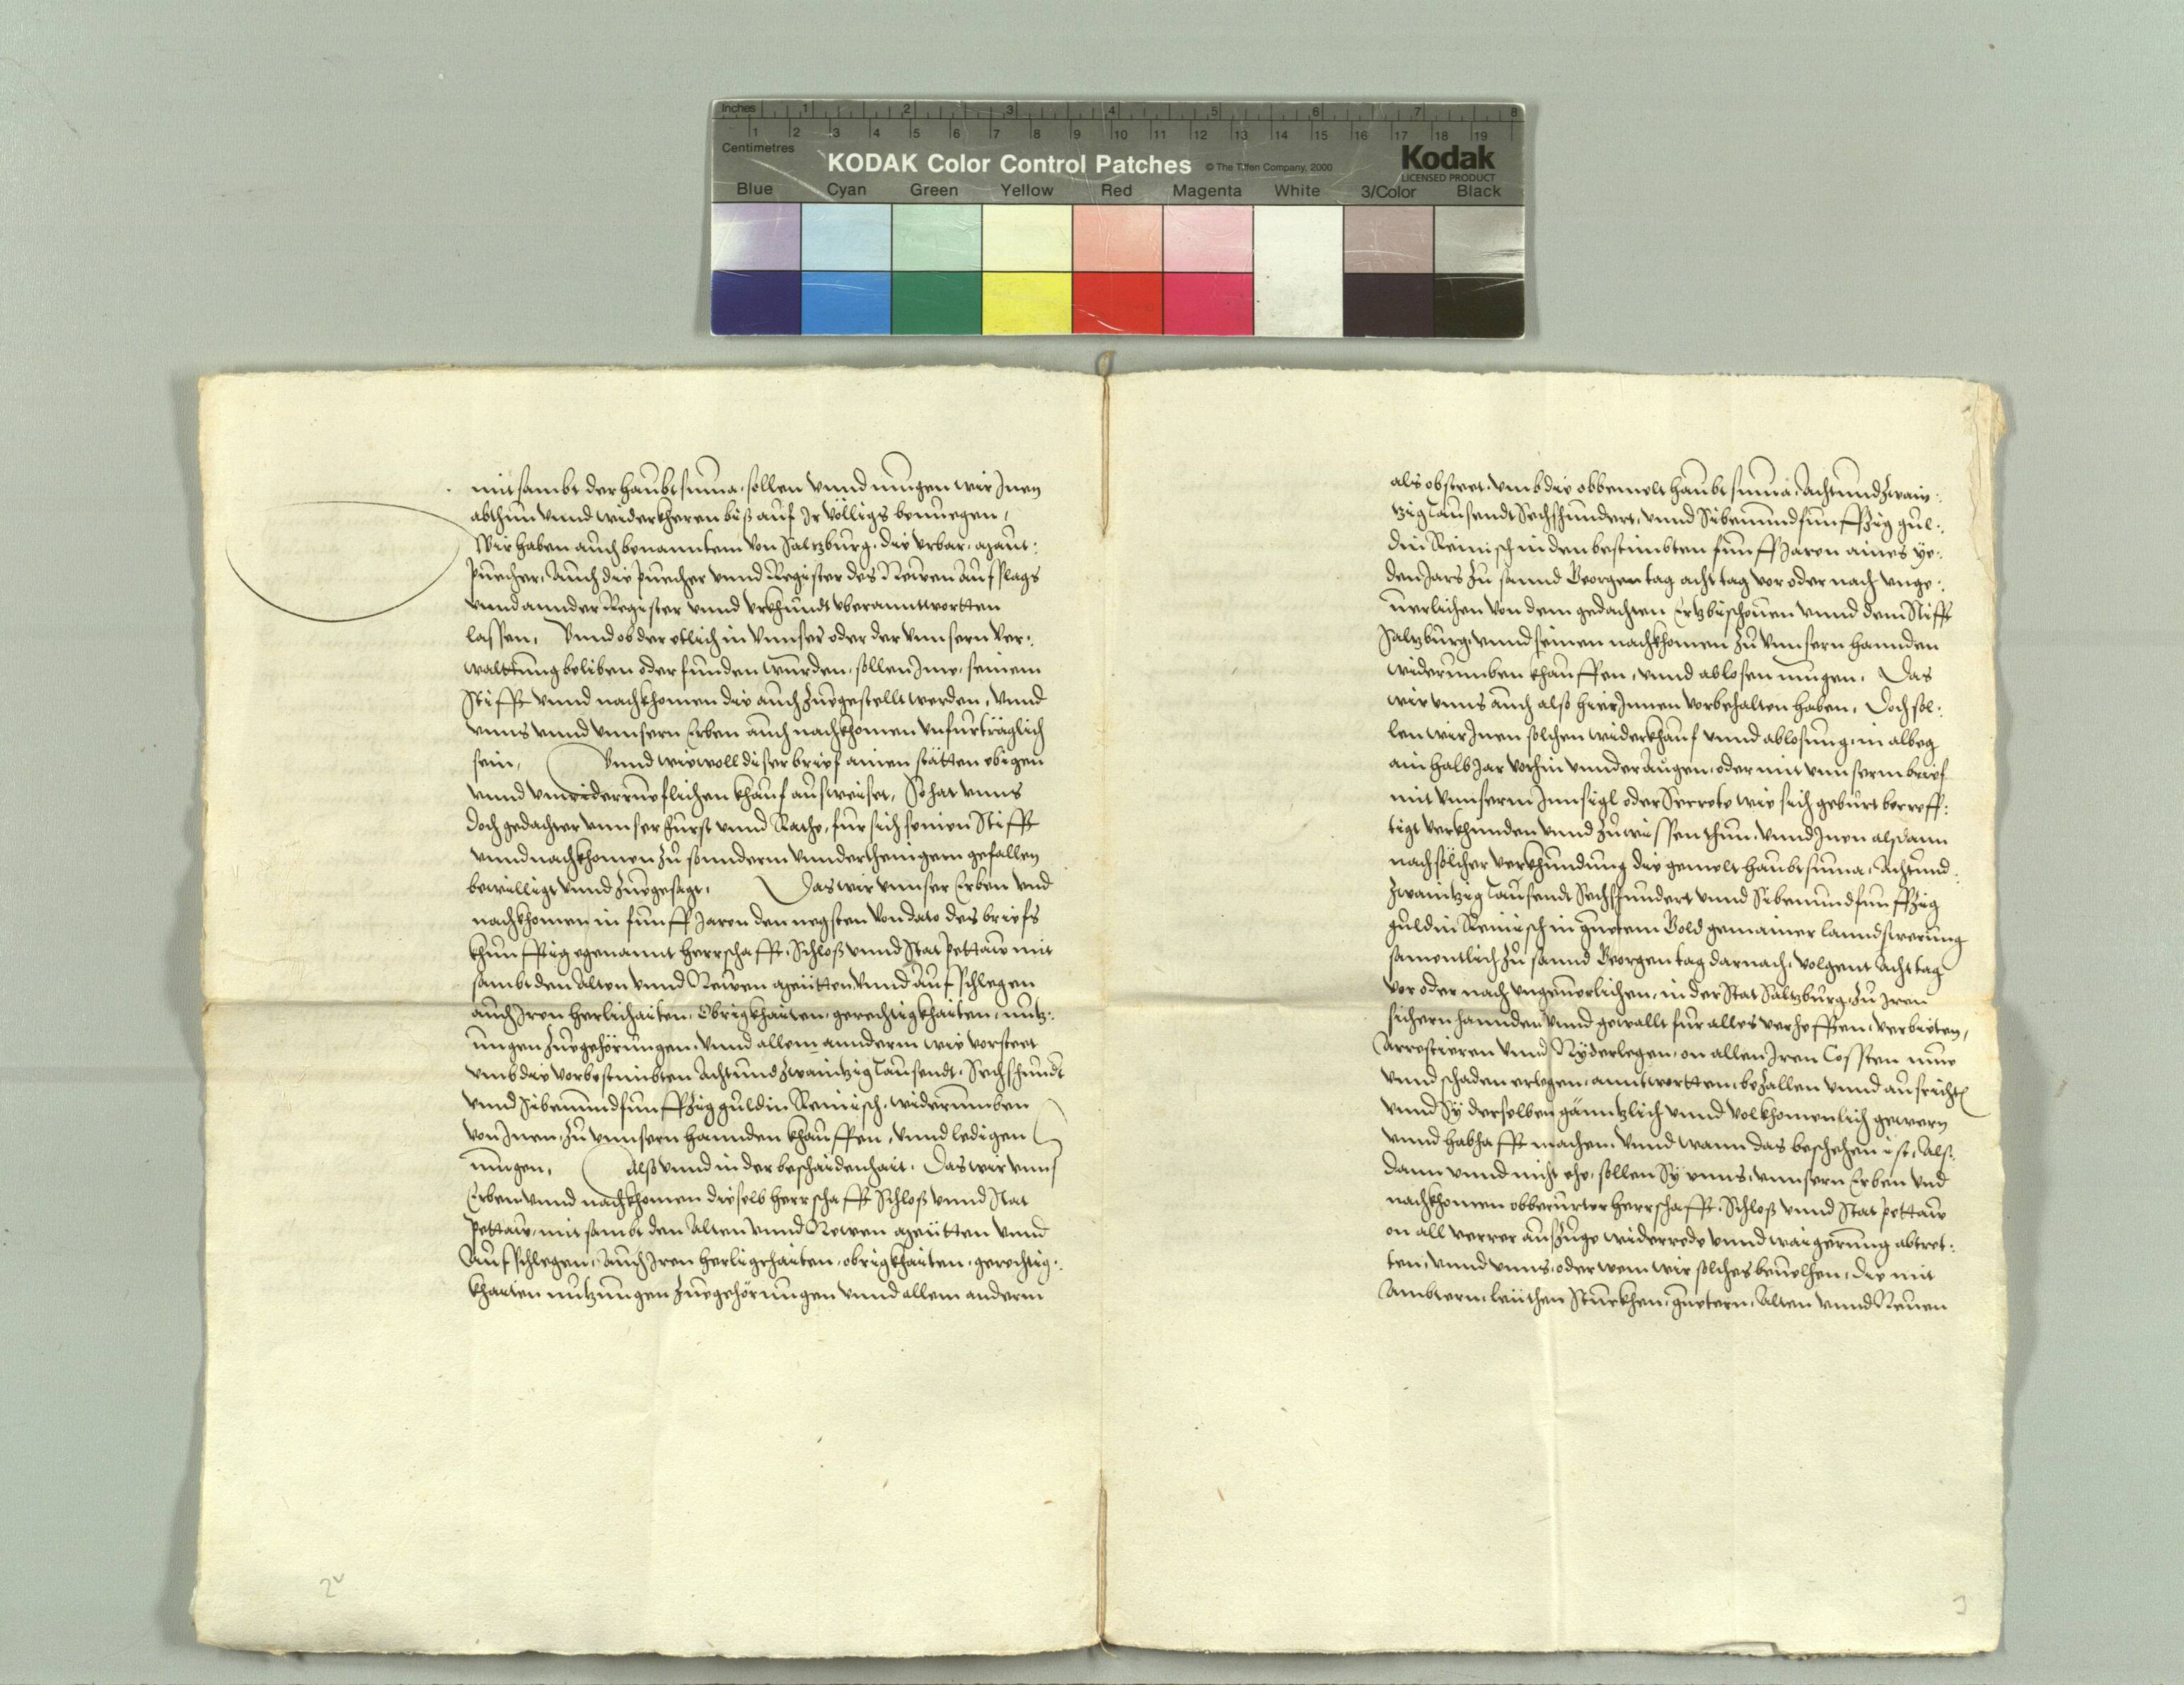 Inches 1 2 3 4 5 6 7 8
1 2 3 4 5 6 7 8 9 10 11 12 13 14 15 16 17 18 19
Centimetres
KODAK Color Control Patches © The Tiffen Company, 2000 Kodak
LICENSED PRODUCT
Blue Cyan Green Yellow Red Magenta White 3/Color Black
mit sambt der haubtsuma, sollen vnnd mugen wir Jnen
abthun vnnd widerkheren biß auf Jr völligs benuegen,
Wir haben auch benanntem von Saltzburg, die vrbar,
puecher, Auch die puecher vnnd Register des Newen Aufslags
vnnd annder Register vnnd vrkhundt vberanntwortten
lassen, Vnnd ob der etlich in vnnser oder der vnnsern ver:
waltung beliben oder funden wurden, sollen Jme, seinem
Stifft vnnd nachkhomen die auch zuegestellt werden, Vnnd
vnns vnnd vnnsern Erben auch nachkhomen vnfürträglich
sein, Vnnd wiewoll diser brief ainen stätten ebigen
vnnd vnwiderrueflichen khauf ausweiset, So hat vnns
doch gedachter vnnser Fürst vnnd Rathe, für sich seinen Stifft
vnnd nachkhomen zu sonnderm vnndertheinigem gefallen
bewilligt vnnd zuegesagt, Das wir vnnser Erben vnd
nachkhomen in funff Jaren den negsten von dato des briefs
khunfftig egenannt herrschafft, Schloß vnnd Stat Pettaw mit
sambt den Alten vnnd Newen meütten vnnd aufschlegen
auch Jren herlichaiten, Obrigkhaiten, gerechtigkhaiten, nutz:
ungen zuegehörungen, vnnd allem annderm wie vorsteet
vmb die vorbestimbten Achtundzwaintzig Tausendt, Sechshundt
vnnd Sibenundfunffzig guldin Reinisch, widerumben
von Jnen, zu vnnsern hannden khauffen, vnnd ledigen
mugen, Alß vnnd in der beschaidenhait, Das wir vnns
Erben vnnd nachkhomen dieselb herrschafft Schloß vnnd Stat
Pettaw, mit sambt den Alten vnnd Newen meütten vnnd
Aufschlegen, Auch Jren herligchaiten, obrigkhaiten, gerechtig:
khaiten nutzungen zuegehörungen vnnd allem anderm
2v
als obsteet, vmb die obbemelt haubtsuma, Achtundzwain:
tzig Tausendt Sechshundert, vnnd Sibenundfunffzig gul:
din Reinisch in den bestimbten funff Jaren aines ye:
den Jars zu sannd Georgen tag acht tag vor oder nach vnge:
uerlichen von dem gedachten Ertzbischouen vnnd dem Stifft
Saltzburg, vnnd seinen nachkhomen zu vnnsern hannden
widerumben khauffen, vnnd ablosen mugen, Das
wir vnns auch also hierJnnen vorbehalten haben, Doch sol:
len wir Jnen solchen widerkhauf vnnd ablosung, in albeg
ain halb Jar vorhin vnnder Augen, oder mit vnnserm brief
mit vnnserm Jnnsigl oder Secrete wie sich geburt becreff:
tigt verkhunden vnnd zu wissen thun, vnnd Jnen alsdann
nach sölcher verkhundung die gemelt haubtsuma, Achtund:
zwaintzig Tausendt Sechshundert vnnd Sibenundfunffzig
guldin Reinisch in guetem Gold gemainer lanndswerung
samentlich zu sannd Georgen tag darnach, volgent Acht tag
vor oder nach vngeuerlichen, in der Stat Saltzburg, zu Jren
sichern hannden vnnd gewallt für alles verhefften, verbieten,
Arrestieren vnnd Nyderlegen, on allen Jren Cossten mue
vnnd schaden erlegen, anntwortten, bezallen vnnd ausrichten
vnnd Sy derselben gänntzlich vnnd volkhomenlich gewern
vnnd habhafft machen, Vnnd wann das beschehen ist, Als:
dann vnnd nicht ehe, sollen Sy vnns, vnnsern Erben vnd
nachkhomen obberürter herrschafft, Schloß vnnd Stat Pettaw
on all verrer außzüge widerrede vnnd waigerung abtret:
ten, vnnd vnns, oder wem wir solches beuelhen, die mit
Ambtern, leüthen Stuckhen, guetern, Alten vnnd Neuen
3